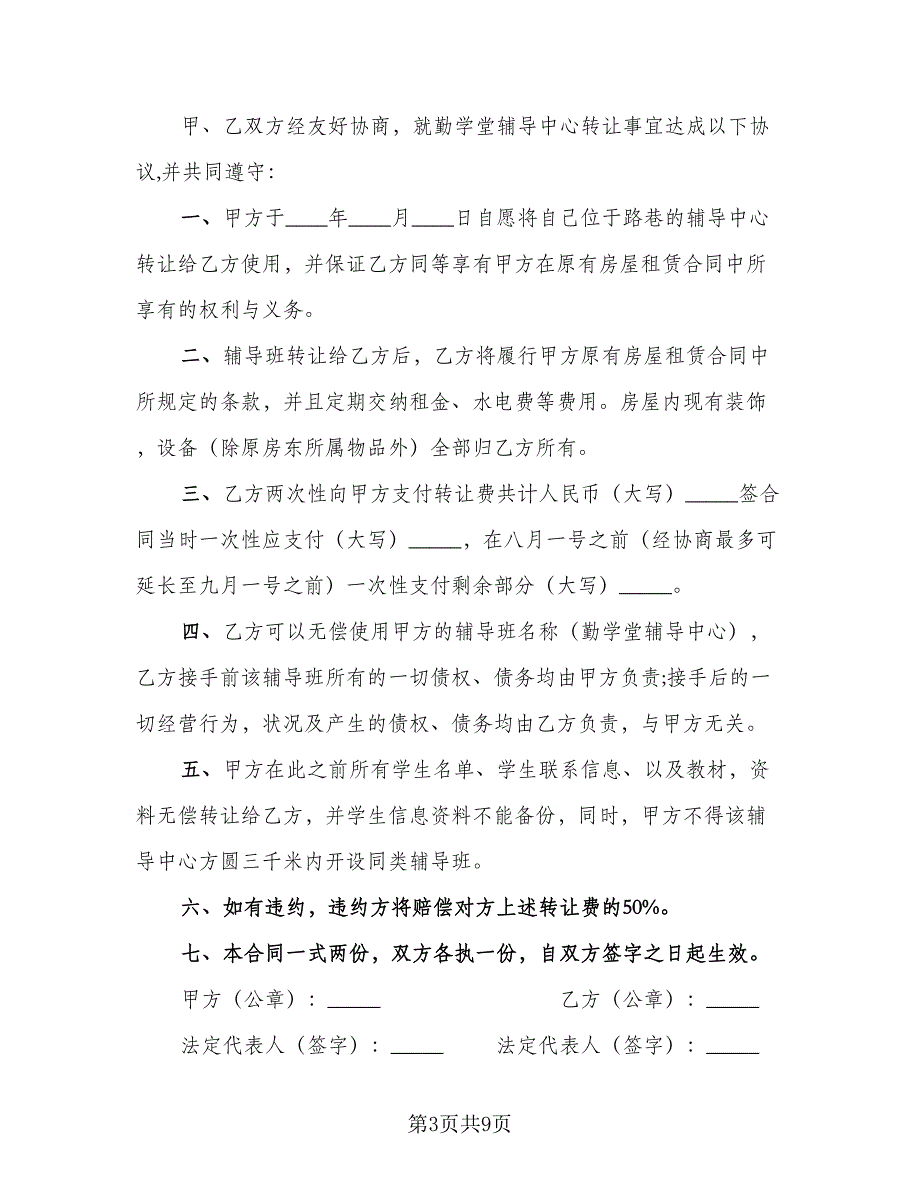 甲、乙双方经友好协商，就勤学堂辅导中心转让事宜达成以下协
议,并共同遵守：
一、甲方于____年____月____日自愿将自己位于路巷的辅导中心
转让给乙方使用，并保证乙方同等享有甲方在原有房屋租赁合同中所
享有的权利与义务。
二、辅导班转让给乙方后，乙方将履行甲方原有房屋租赁合同中
所规定的条款，并且定期交纳租金、水电费等费用。房屋内现有装饰
，设备（除原房东所属物品外）全部归乙方所有。
三、乙方两次性向甲方支付转让费共计人民币（大写）_____签合
同当时一次性应支付（大写）_____，在八月一号之前（经协商最多可
延长至九月一号之前）一次性支付剩余部分（大写）_____。
四、乙方可以无偿使用甲方的辅导班名称（勤学堂辅导中心），
乙方接手前该辅导班所有的一切债权、债务均由甲方负责;接手后的一
切经营行为，状况及产生的债权、债务均由乙方负责，与甲方无关。
五、甲方在此之前所有学生名单、学生联系信息、以及教材，资
料无偿转让给乙方，并学生信息资料不能备份，同时，甲方不得该辅
导中心方圆三千米内开设同类辅导班。
六、如有违约，违约方将赔偿对方上述转让费的50%。
七、本合同一式两份，双方各执一份，自双方签字之日起生效。
甲方（公章）：_____ 乙方（公章）：_____
法定代表人（签字）：_____ 法定代表人（签字）：_____
第3页共9页